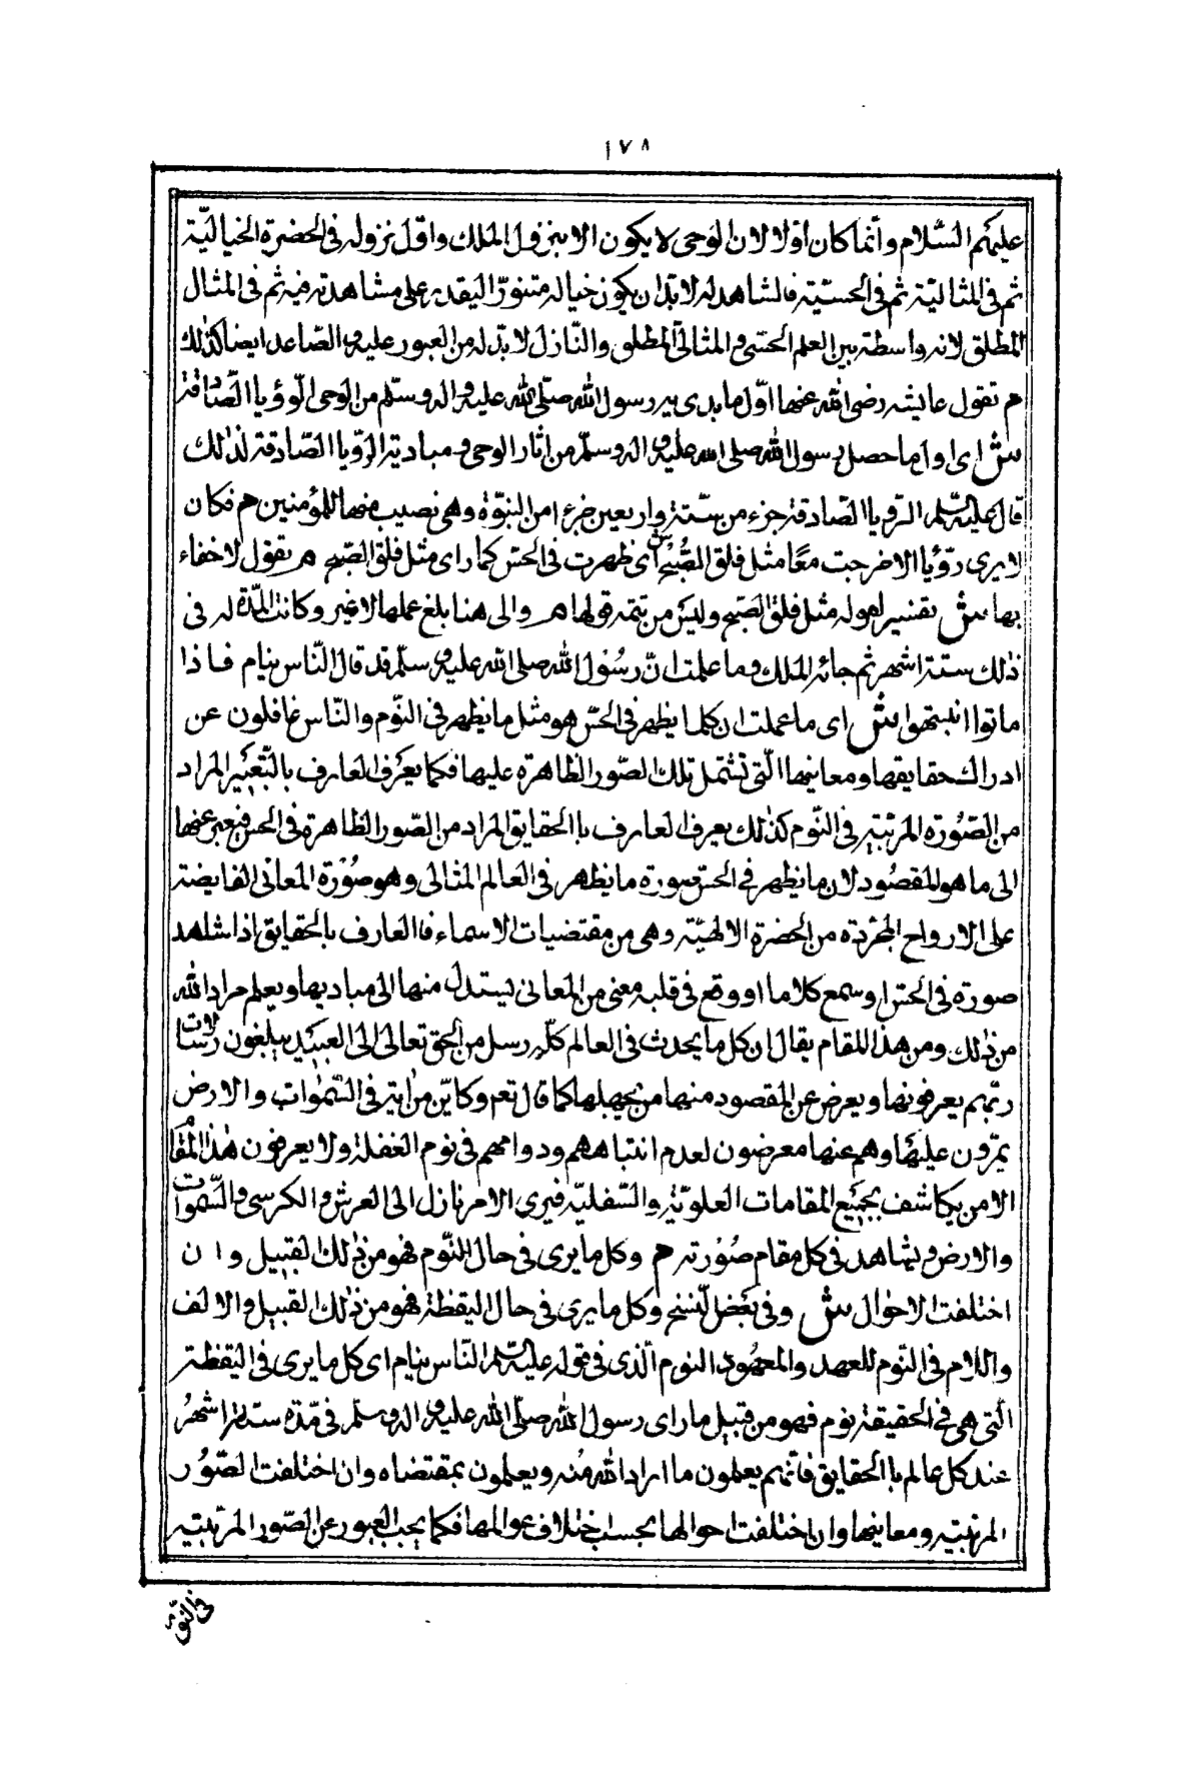 ١٧٨
عليهم السّلام وانّما كان اوّلا لان الوحى لا يكون الا بنزول الملك واوّل نزوله فى الحضرة الخياليّة
ثم فى المثاليّة ثم فى الحسيّة فالشاهد له لا بدّ ان يكون خياله متنورّا ليقدر على مشاهدته فيه ثم فى المثال
المطلق لانه واسطة بين العلم الحسّى و المثالىّ المطلق والنّازل لا بدّ له من العبور عليه و الصّاعد ايضا كذلك
م تقول عايشه رضى الله عنها اوّل ما بدى به رسول الله صلّى الله عليه و اله وسلّم من الوحى الرّوؤيا الصّادقة
ش اى اول ما حصل لرسول الله صلى الله عليه و اله وسلّم من اثار الوحى و مباديه الرّويا الصّادقة لذلك
قال عليه السّلم الرّويا الصّادقة جزء من ستّة واربعين جزءا من النبوّة وهى نصيب منها للمؤمنين م فكان
لا يرى رؤيا الا خرجت معا مثل فلق الصُّبْح ش اى ظهرت فى الحسّ كما راى مثل فلق الصّبح م تقول لا خفاء
بها ش تفسير لقوله مثل فلق الصّبح وليس من تتمه قولها م والى هنا بلغ عملها لا غير وكانت المدّة له فى
ذلك ستة اشهر ثم جائه الملك وما علمت انّ رسُول الله صلى الله عليه و سلّم قد قال النّاس نيام فاذا
ماتوا انتبهوا ش اى ما عملت ان كلما يظهر فى الحسّ هو مثل ما يظهر فى النّوم والنّاس غافلون عن
ادراك حقايقها ومعانيها الّتى تشتمل تلك الصّور الظاهرة عليها فكما يعرف العارف بالتّعبير المراد
من الصّورة المرئيّة فى النّوم كذلك يعرف العارف بالحقايق المراد من الصّور الظاهرة فى الحسّ فيعبر عنها
الى ما هو المقصُود لان ما يظهر فى الحسّ صورة ما يظهر فى العالم المثالى وهو صُورة المعانى الفايضة
على الارواح المجرّدة من الحضرة الالهيّة وهى من مقتضيات الاسماء فالعارف بالحقايق اذا شاهد
صورة فى الحسّ او سمع كلاما او وقع فى قلبه معنى من المعانى يستدل منها الى مباديها ويعلم مراد الله
من ذلك ومن هذا المقام يقال ان كل ما يحدث فى العالم كلّه رسل من الحق تعالى الى العبيد يبلغون رسالات
ربّهم يعرفونها ويعرض عن المقصود منها من يجهلها كما قال تعم وكايّن من اية فى السّموات والارض
يمرّون عليها وهم عنها معرضون لعدم انتباههم ودوامهم فى نوم الغفلة ولا يعرفون هذا المقام
الا من يكاشف بجميع المقامات العلويّة والسّفليّه فيرى الامر نازل الى العرش و الكرسى و السّموات
والارض و يشاهد فى كل مقام صُورته م وكل ما يرى فى حال النّوم فهو من ذلك القبيل وان
اختلفت الاحوال ش وفى بعض النّسخ وكل ما يرى فى حال اليقظة فهو من ذلك القبيل والالف
واللام فى النّوم للعهد والمعهُود النوم الّذى فى قوله عليه السّلم النّاس نيام اى كل ما يرى فى اليقظة
الّتى هى فى الحقيقة نوم فهو من قبيل ما راى رسول الله صلّى الله عليه و اله وسلم فى مدّة ستة اشهُر
عند كل عالم بالحقايق فانّهم يعلمون ما اراد الله منه ويعملون بمقتضاه وان اختلفت الصّوُر
المرئيّة ومعانيها وان اختلفت احوالها بحسب اختلاف عوالمها فكما يجب العبور عن الصّور المرئيّة
فى النّوم